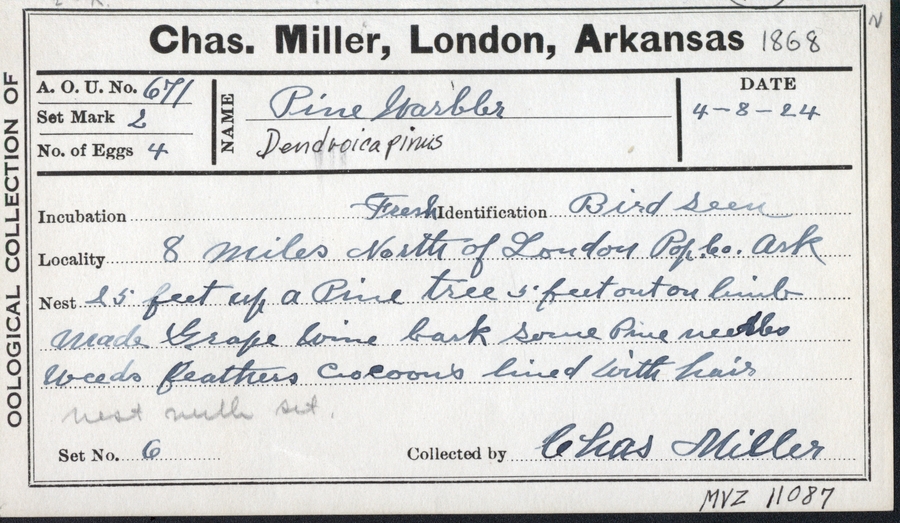 OOLOGICAL COLLECTION OF
Chas. Miller, London, Arkansas 1868
A. O. U. No. 671
Set Mark 2
No. of Eggs 4
NAME
Pine Warbler
Dendroica pinus
DATE
4-8-24
Incubation Fresh Identification Bird seen
Locality 8 miles North of London Pop. Co. Ark
Nest 25 feet up a Pine tree 5 feet out on limb
made Grape Vine bark some Pine needles
weeds feathers Cocoons lined with hair
nest with set.
Set No. 6 Collected by Chas Miller
MVZ 11087